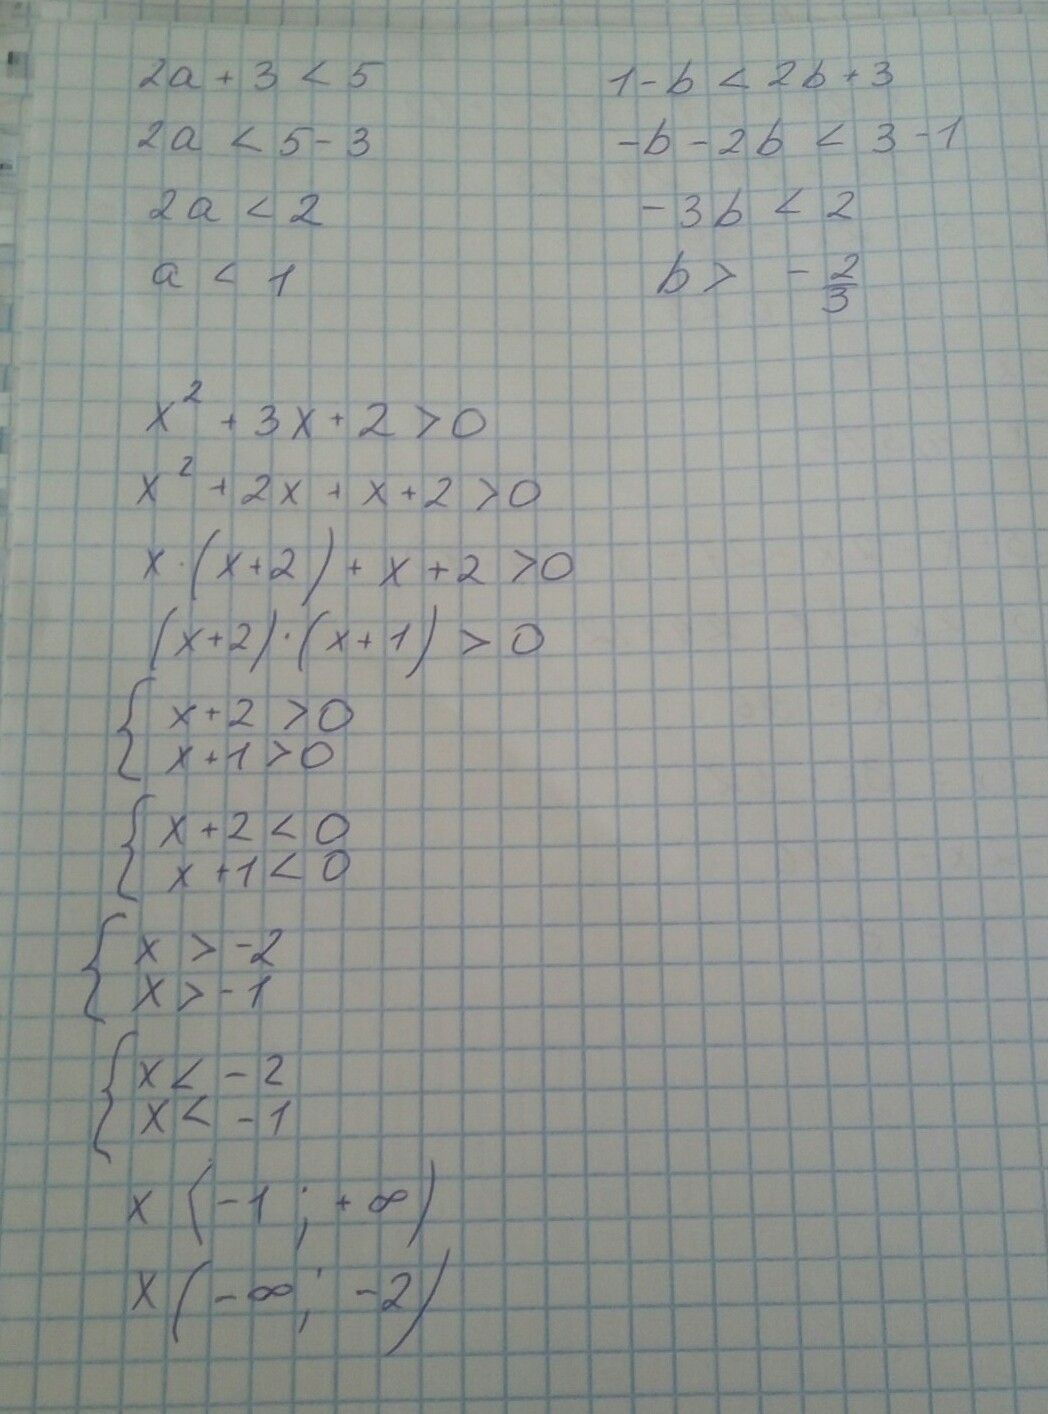 2a + 3 < 5
2a < 5 - 3
2a < 2
a < 1
1 - b < 2b + 3
-b - 2b < 3 - 1
-3b < 2
b > - 2/3
x² + 3x + 2 > 0
x² + 2x + x + 2 > 0
x · (x+2) + x + 2 > 0
(x+2) · (x+1) > 0
{ x + 2 > 0
x + 1 > 0
{ x + 2 < 0
x + 1 < 0
{ x > -2
x > -1
{ x < -2
x < -1
x (-1 ; +∞)
x (-∞ ; -2)